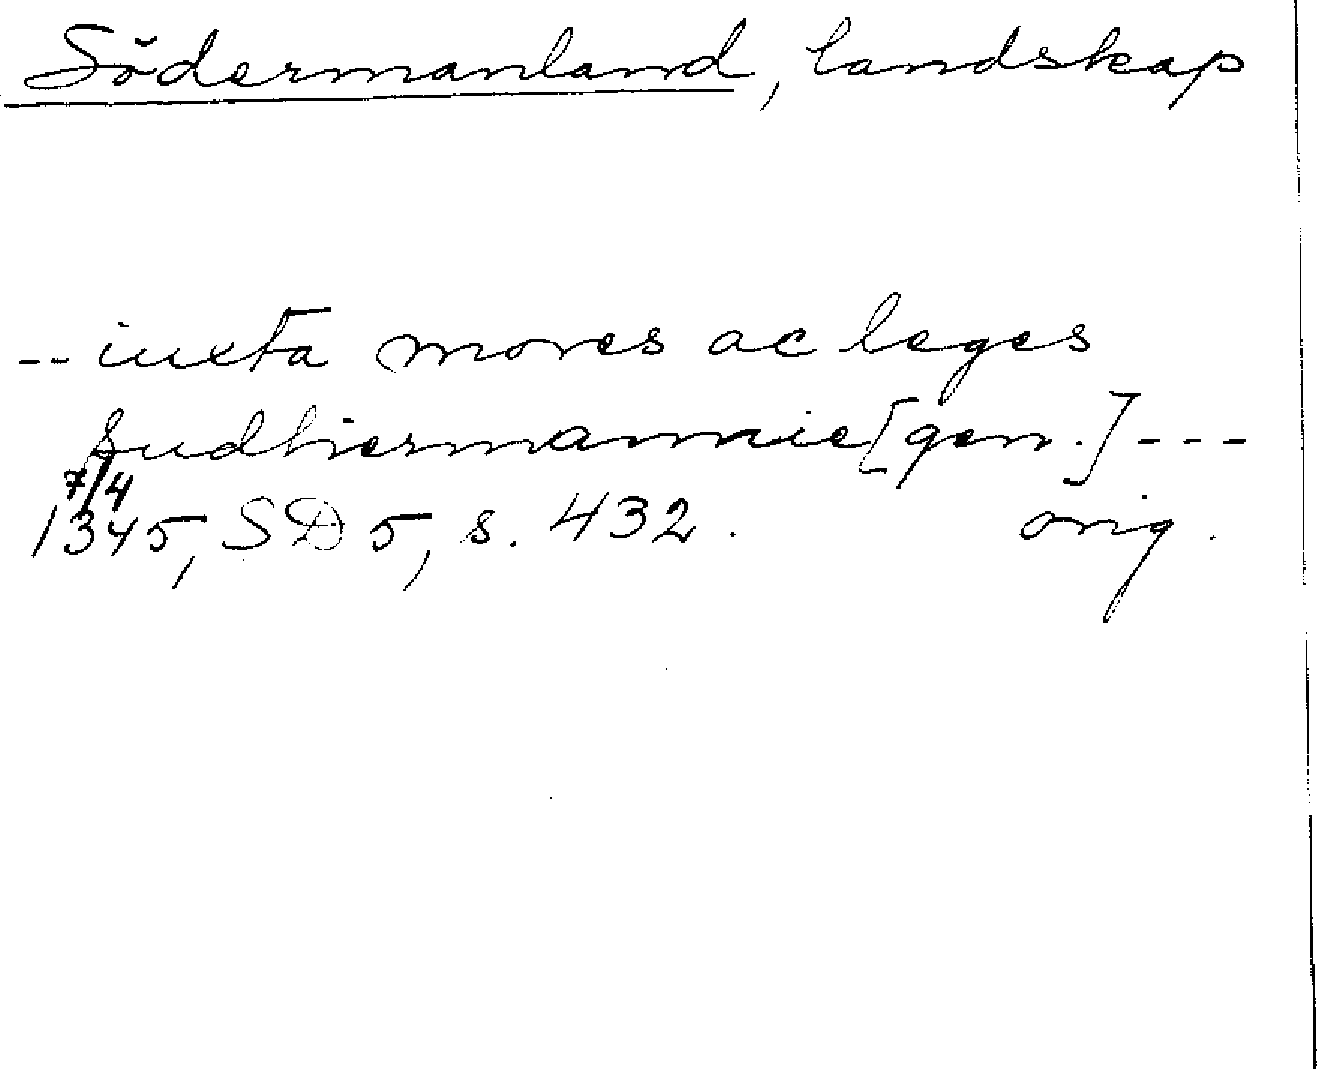 Södermanland, landskap
-- iuxta mores ac leges
sudhermannie [gen.] ---
7/4
1345, SD 5, s. 432. orig.